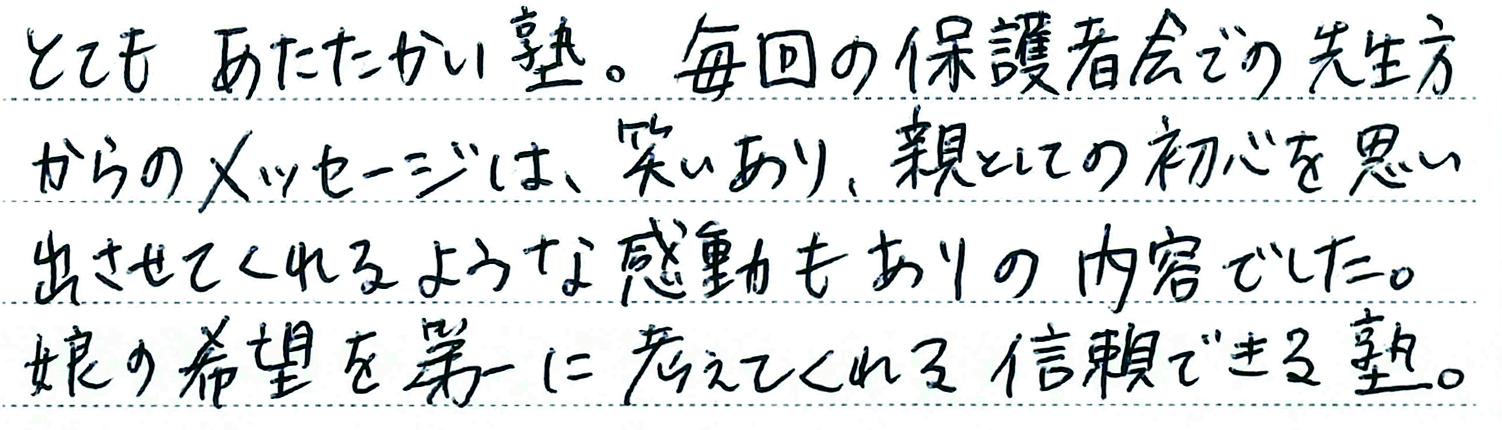 とても あたたかい塾。毎回の保護者会での先生方
からのメッセージは、笑いあり、親としての初心を思い
出させてくれるような感動もありの内容でした。
娘の希望を第一に考えてくれる信頼できる塾。